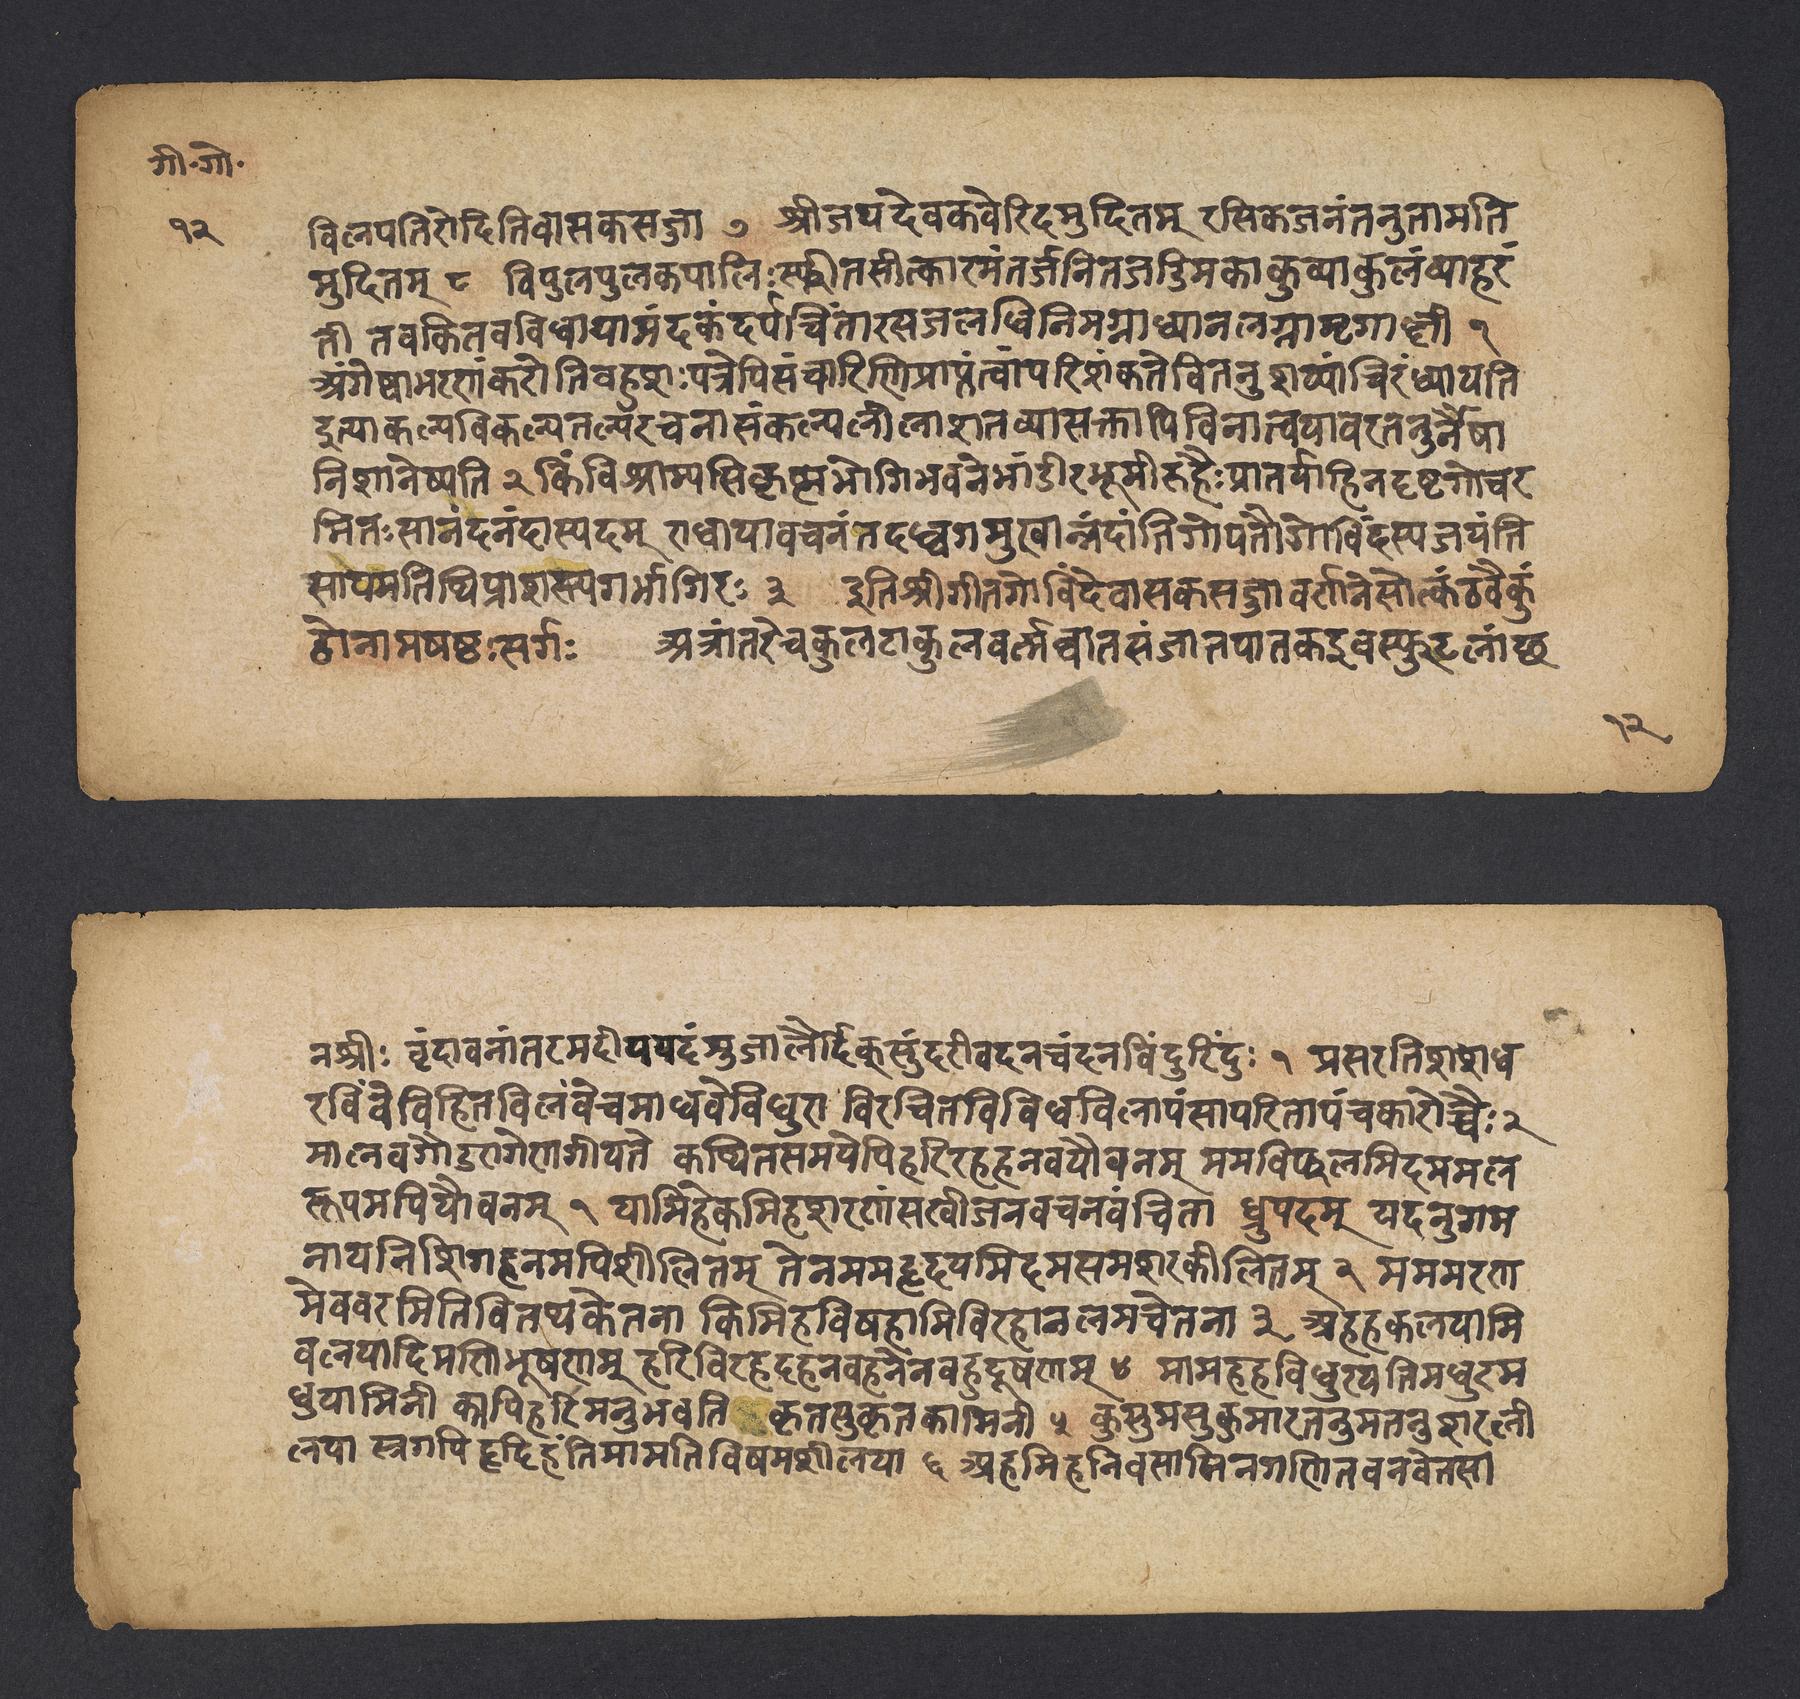 गी॰गो॰
१२
विलपतिरोदितिवासकसज्जा ७ श्रीजयदेवकवेरिदमुदितम् रसिकजनंतनुतामति
मुदितम् ८ विपुलपुलकपालिःस्फीतसीत्कारमंतर्जनितजडिमकाकुव्याकुलंव्याहरं
ती तवकितवविधायामंदकंदर्पचिंतारसजलधिनिमग्नाध्यानलग्नामृगाक्षी १
अंगेष्वाभरणंकरोतिवहुशःपत्रेपिसंचारिणिप्राप्तंत्वांपरिशंकतेवितनुशय्यांचिरंध्यायति
इत्याकल्पविकल्पतल्परचनासंकल्पलीलाशतव्यासक्तापिविनात्वयावरतनुर्नैषा
निशांनेष्यति २ किंविश्राम्यसिकृष्णभोगिभवनेभांडीरभूमीरुहैःप्रातर्याहिनदृष्टगोचर
मितःसानंदनंदास्पदम् राधायावचनंतदध्वगमुखान्नंदांतिगोपतोगोविंदस्यजयंति
सायमतिथिप्राशस्त्यगर्भागिरः ३ इतिश्रीगीतगोविंदेवासकसज्जावर्णनेसोत्कंठवैकुं
ठोनामषष्ठःसर्गः अत्रांतरेचकुलटाकुलवर्त्मघातसंजातपातकइवस्फुटलांछ
१२
नश्रीः वृंदावनांतरमदीपयदंसुजालैर्दिक्सुंदरीवदनचंदनविंदुरिंदुः १ प्रसरतिशशध
रविंवेविहितविलंवेचमाधवेविधुरा विरचितविविधविलापंसापरितापंचकारोच्चैः २
मालवगौडरागेणगीयते कथितसमयेपिहरिरहहनवयौवनम् ममविफलमिदममल
रूपमपियौवनम् १ यामिहेकमिहशरणंसखीजनवचनवंचिता ध्रुपदम् यदनुगम
नायनिशिगहनमपिशीलितम् तेनममहृदयमिदमसमशरकीलितम् २ मममरण
मेववरमितिवितथकेतना किमिहविषहामिविरहानलमचेतना ३ अहहकलयामि
वलयादिमणिभूषणम् हरिविरहदहनवहनेनवहुदूषणम् ४ मामहहविधुरयतिमधुरम
धुयामिनी कापिहरिमनुभवति कृतसुकृतकामिनी ५ कुसुमसुकुमारतनुमतनुशरली
लया स्रगपिहृदिहंतिमामतिविषमशीलया ६ अहमिहनिवसामिनगणितवनवेतसा